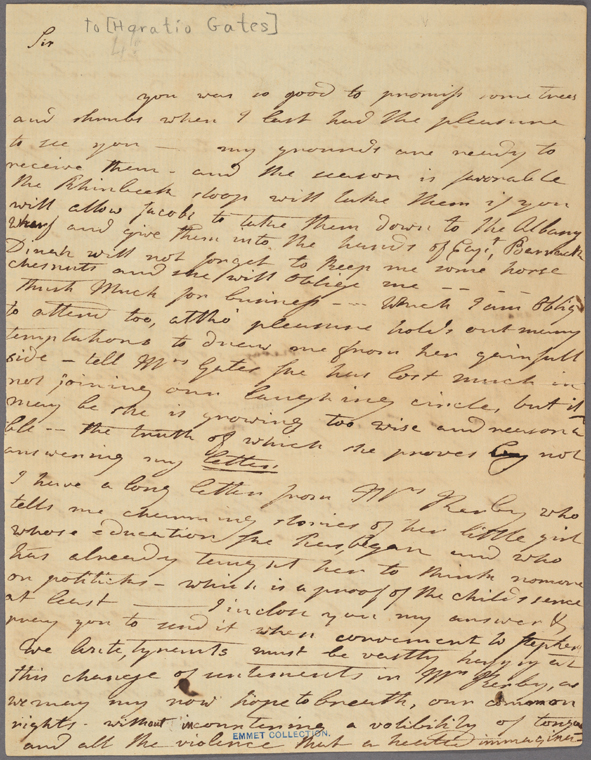 to [Horatio Gates]
Sir
you was so good to promiss some trees
and shrubs when I last had the pleasure
to see you — my grounds are ready to
receive them - and the season is favorable
the Rhinbeck sloop will take them if you
will allow Jacob to take them down to the Albany
Wharf and give them into the hands of Capt,
Dinah will not forget to keep me some horse
chesnuts and she will oblige me — — —
think Much for business — — Which I am Oblig
to attend too, altho' pleasure hold's out many
temptations to draw me from her gainfull
side — tell Mrs Gates she has lost much in
not joining our laughing circle, but it
may be she is growing too wise and reasona
ble — the truth of which she proves by not
answering my letter.
I have a long letter from Mrs who
tells me charming stories of her little girl
whose education she has began and who
has already taught her to think nomore
on politicks — which is a proof of the childs sence
at least — I inclose you my answer &
pray you to send it when convenient to Stephen
we write, tyrants must be vastly happy at
this change of sentements in Mrs as
we may my now hope to breath, our common
rights - without incountering a volibility of tongue
and all the violence that a heated immagina-
EMMET COLLECTION.